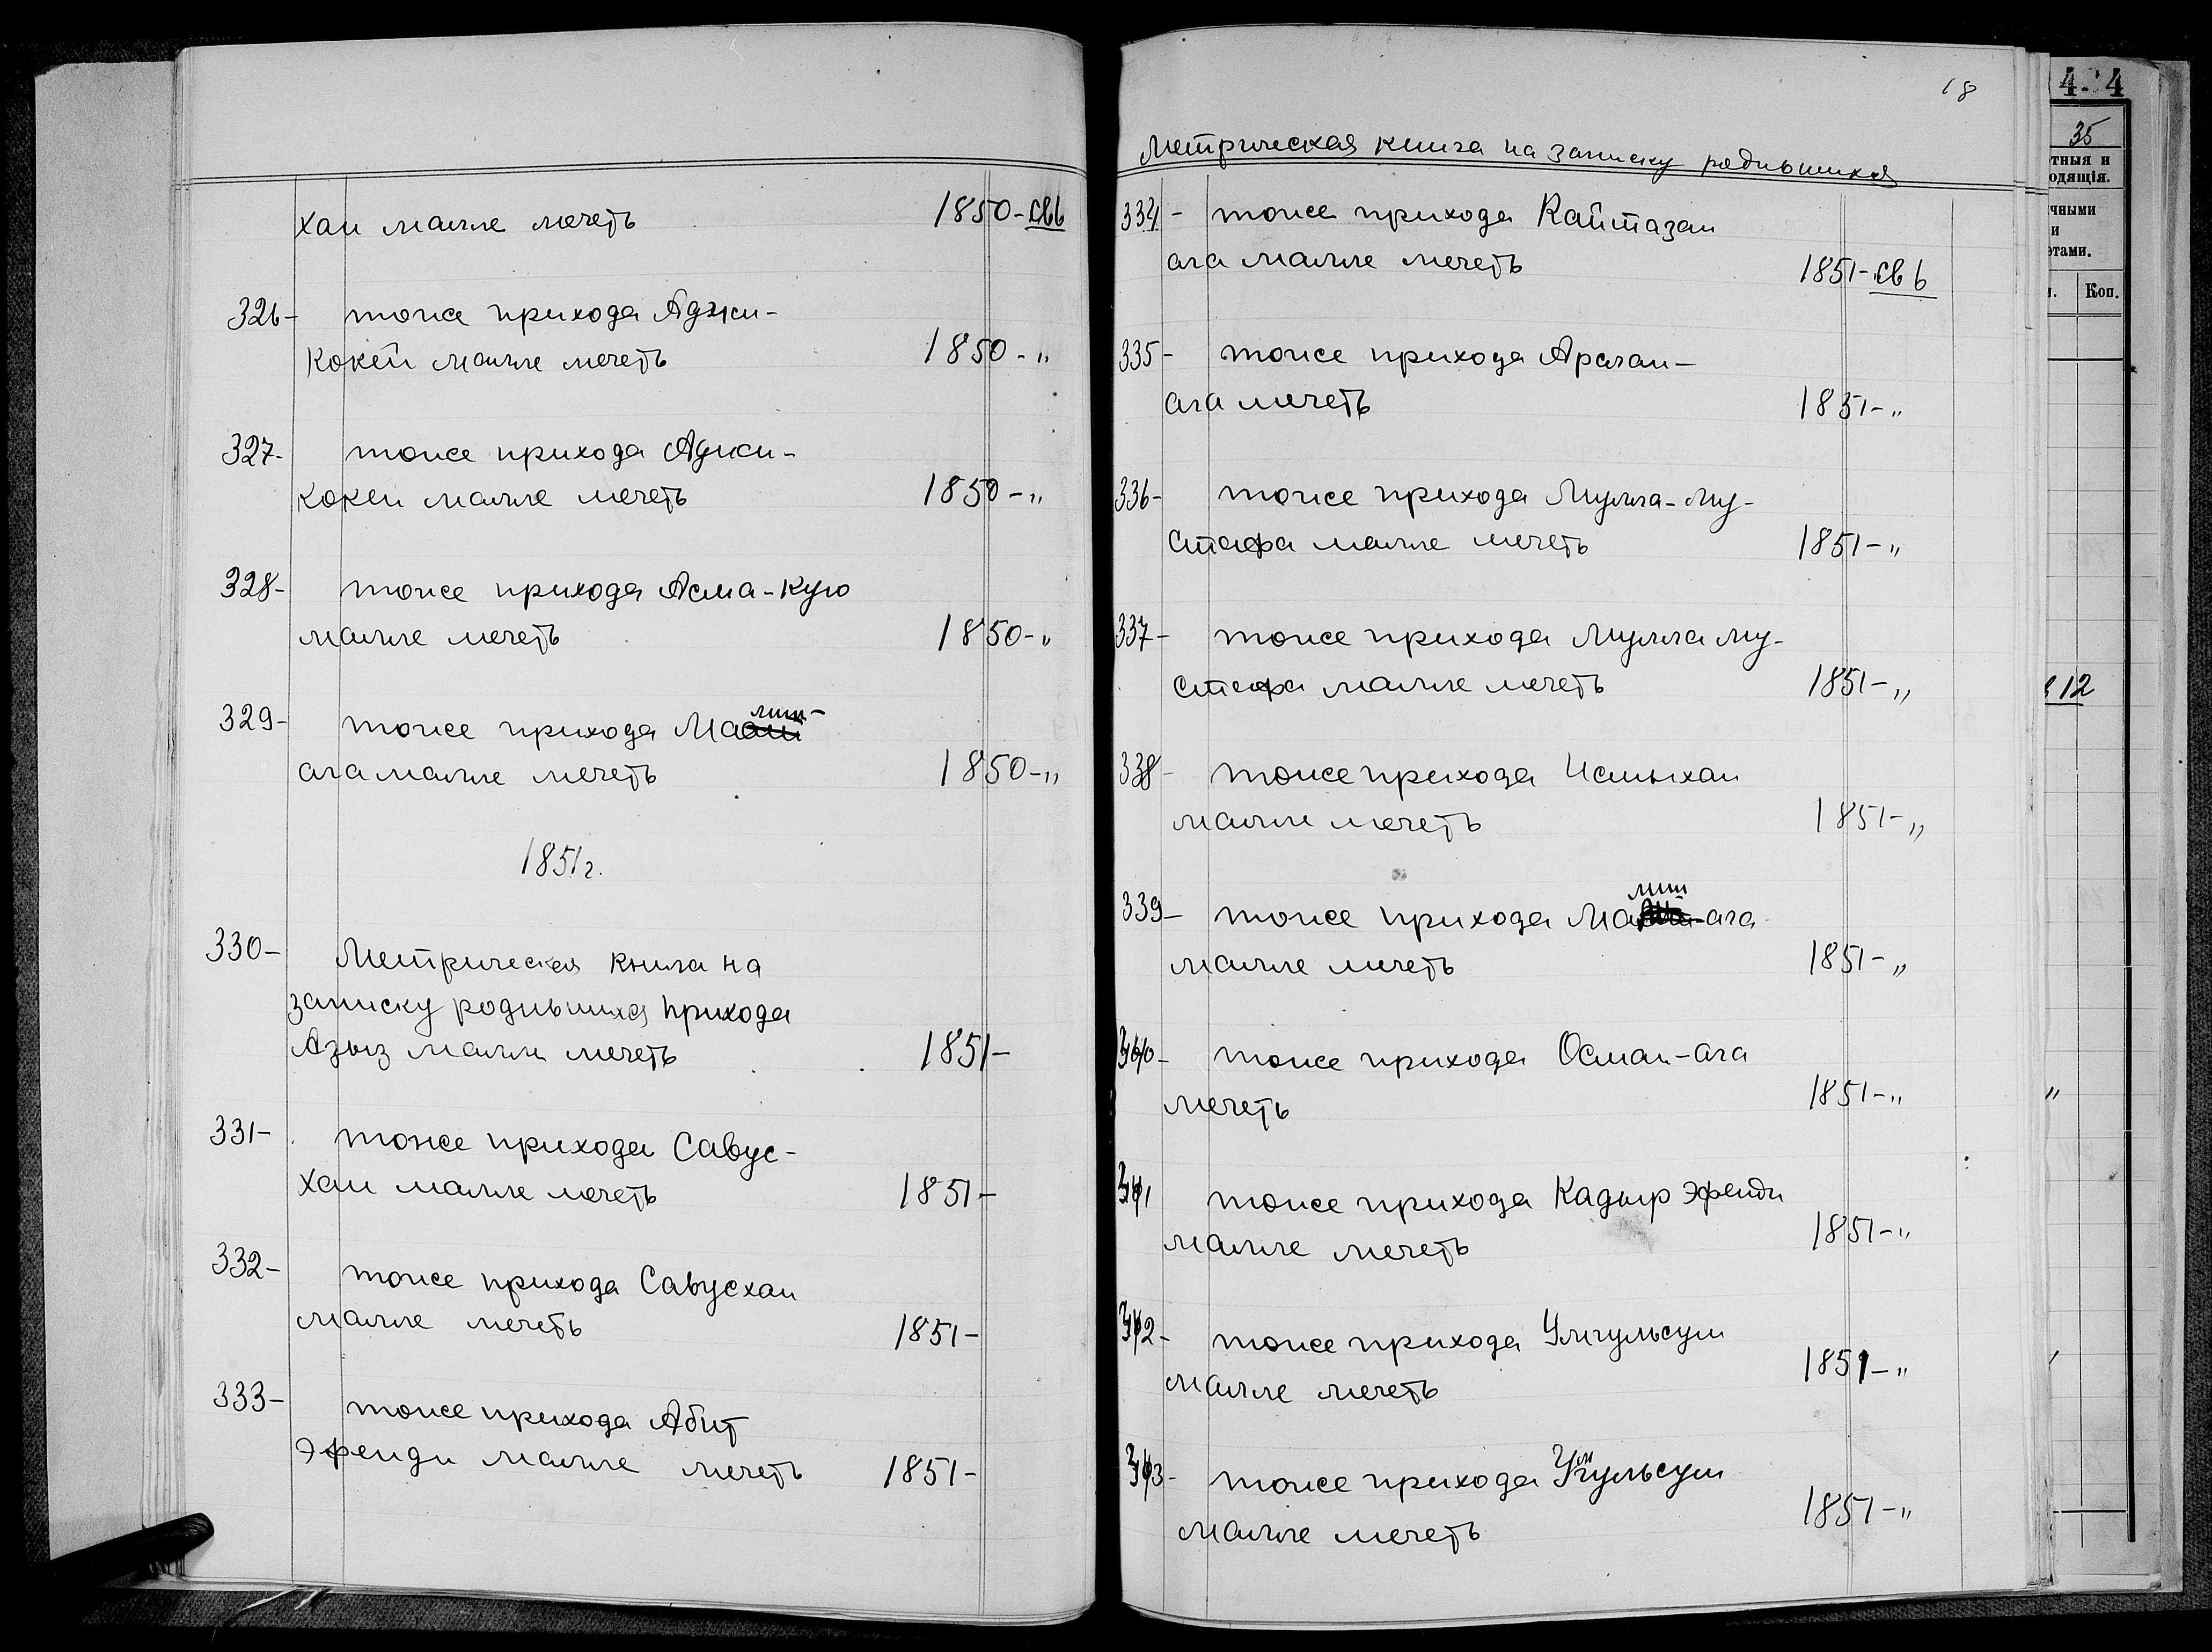 хан малле мечеть 1850-свб
326- тоже прихода Аджи-
Кокей малле мечеть 1850-"
327- тоже прихода Аджи-
кокеи малле мечеть 1850-"
328- тоже прихода Асма-кую
малле мечеть 1850-"
329- тоже прихода Малии-
ага малле мечеть 1850-"
1851г.
330- Метрическая книга на
записку родившихся прихода
Азыз малле мечеть 1851-
331- тоже прихода Савус-
хан малле мечеть 1851-
332- тоже прихода Савусхан
малле мечеть 1851-
333- тоже прихода Абит
эфенди малле мечеть 1851-
18
Метрическая книга на записку родившихся
334- тоже прихода Каймазан
ага малле мечеть 1851-свб
335- тоже прихода Арслан-
ага мечеть 1851-"
336- тоже прихода Мулла-Му-
стафа малле мечеть 1851-"
337- тоже прихода Мулла Му-
стафа малле мечеть 1851-"
338- тоже прихода Исмыхан
малле мечеть 1851-"
339- тоже прихода Малии-ага
малле мечеть 1851-"
340- тоже прихода Осман-ага
мечеть 1851-"
341 тоже прихода Кадыр эфенди
малле мечеть 1851-"
342- тоже прихода Умгульсум
малле мечеть 1851-"
343- тоже прихода Умгульсум
малле мечеть 1851-"
4. 4
35
тныя и
одящія.
чными
и
этами.
Коп.
12